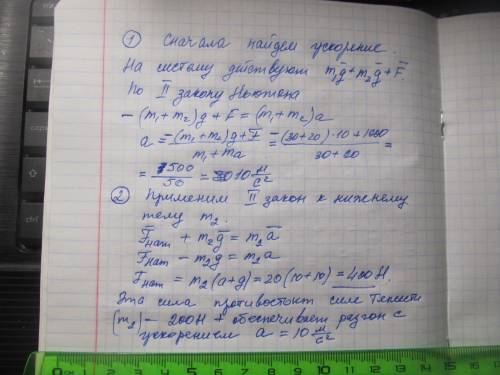 ① Сначала найдем ускорение.
На систему действуют m₁g̅ + m₂g̅ + F̅.
По II закону Ньютона
– (m₁+m₂)g + F = (m₁+m₂)a
a = –(m₁+m₂)g+F / m₁+m₂ = –(30+20)·10+1000 / 30+20 =
= 500/50 = 10 м/с²
② Применим II закон к нижнему
телу m₂.
F̅нат + m₂g̅ = m₂a̅
Fнат – m₂g = m₂a
Fнат = m₂(a+g) = 20(10+10) = 400Н.
Эта сила противостоит силе тяжести
(m₂) – 200Н + обеспечивает разгон с
ускорением a = 10 м/с²
0 СМ 1 2 3 4 5 6 7 8 9 10 11 12 13